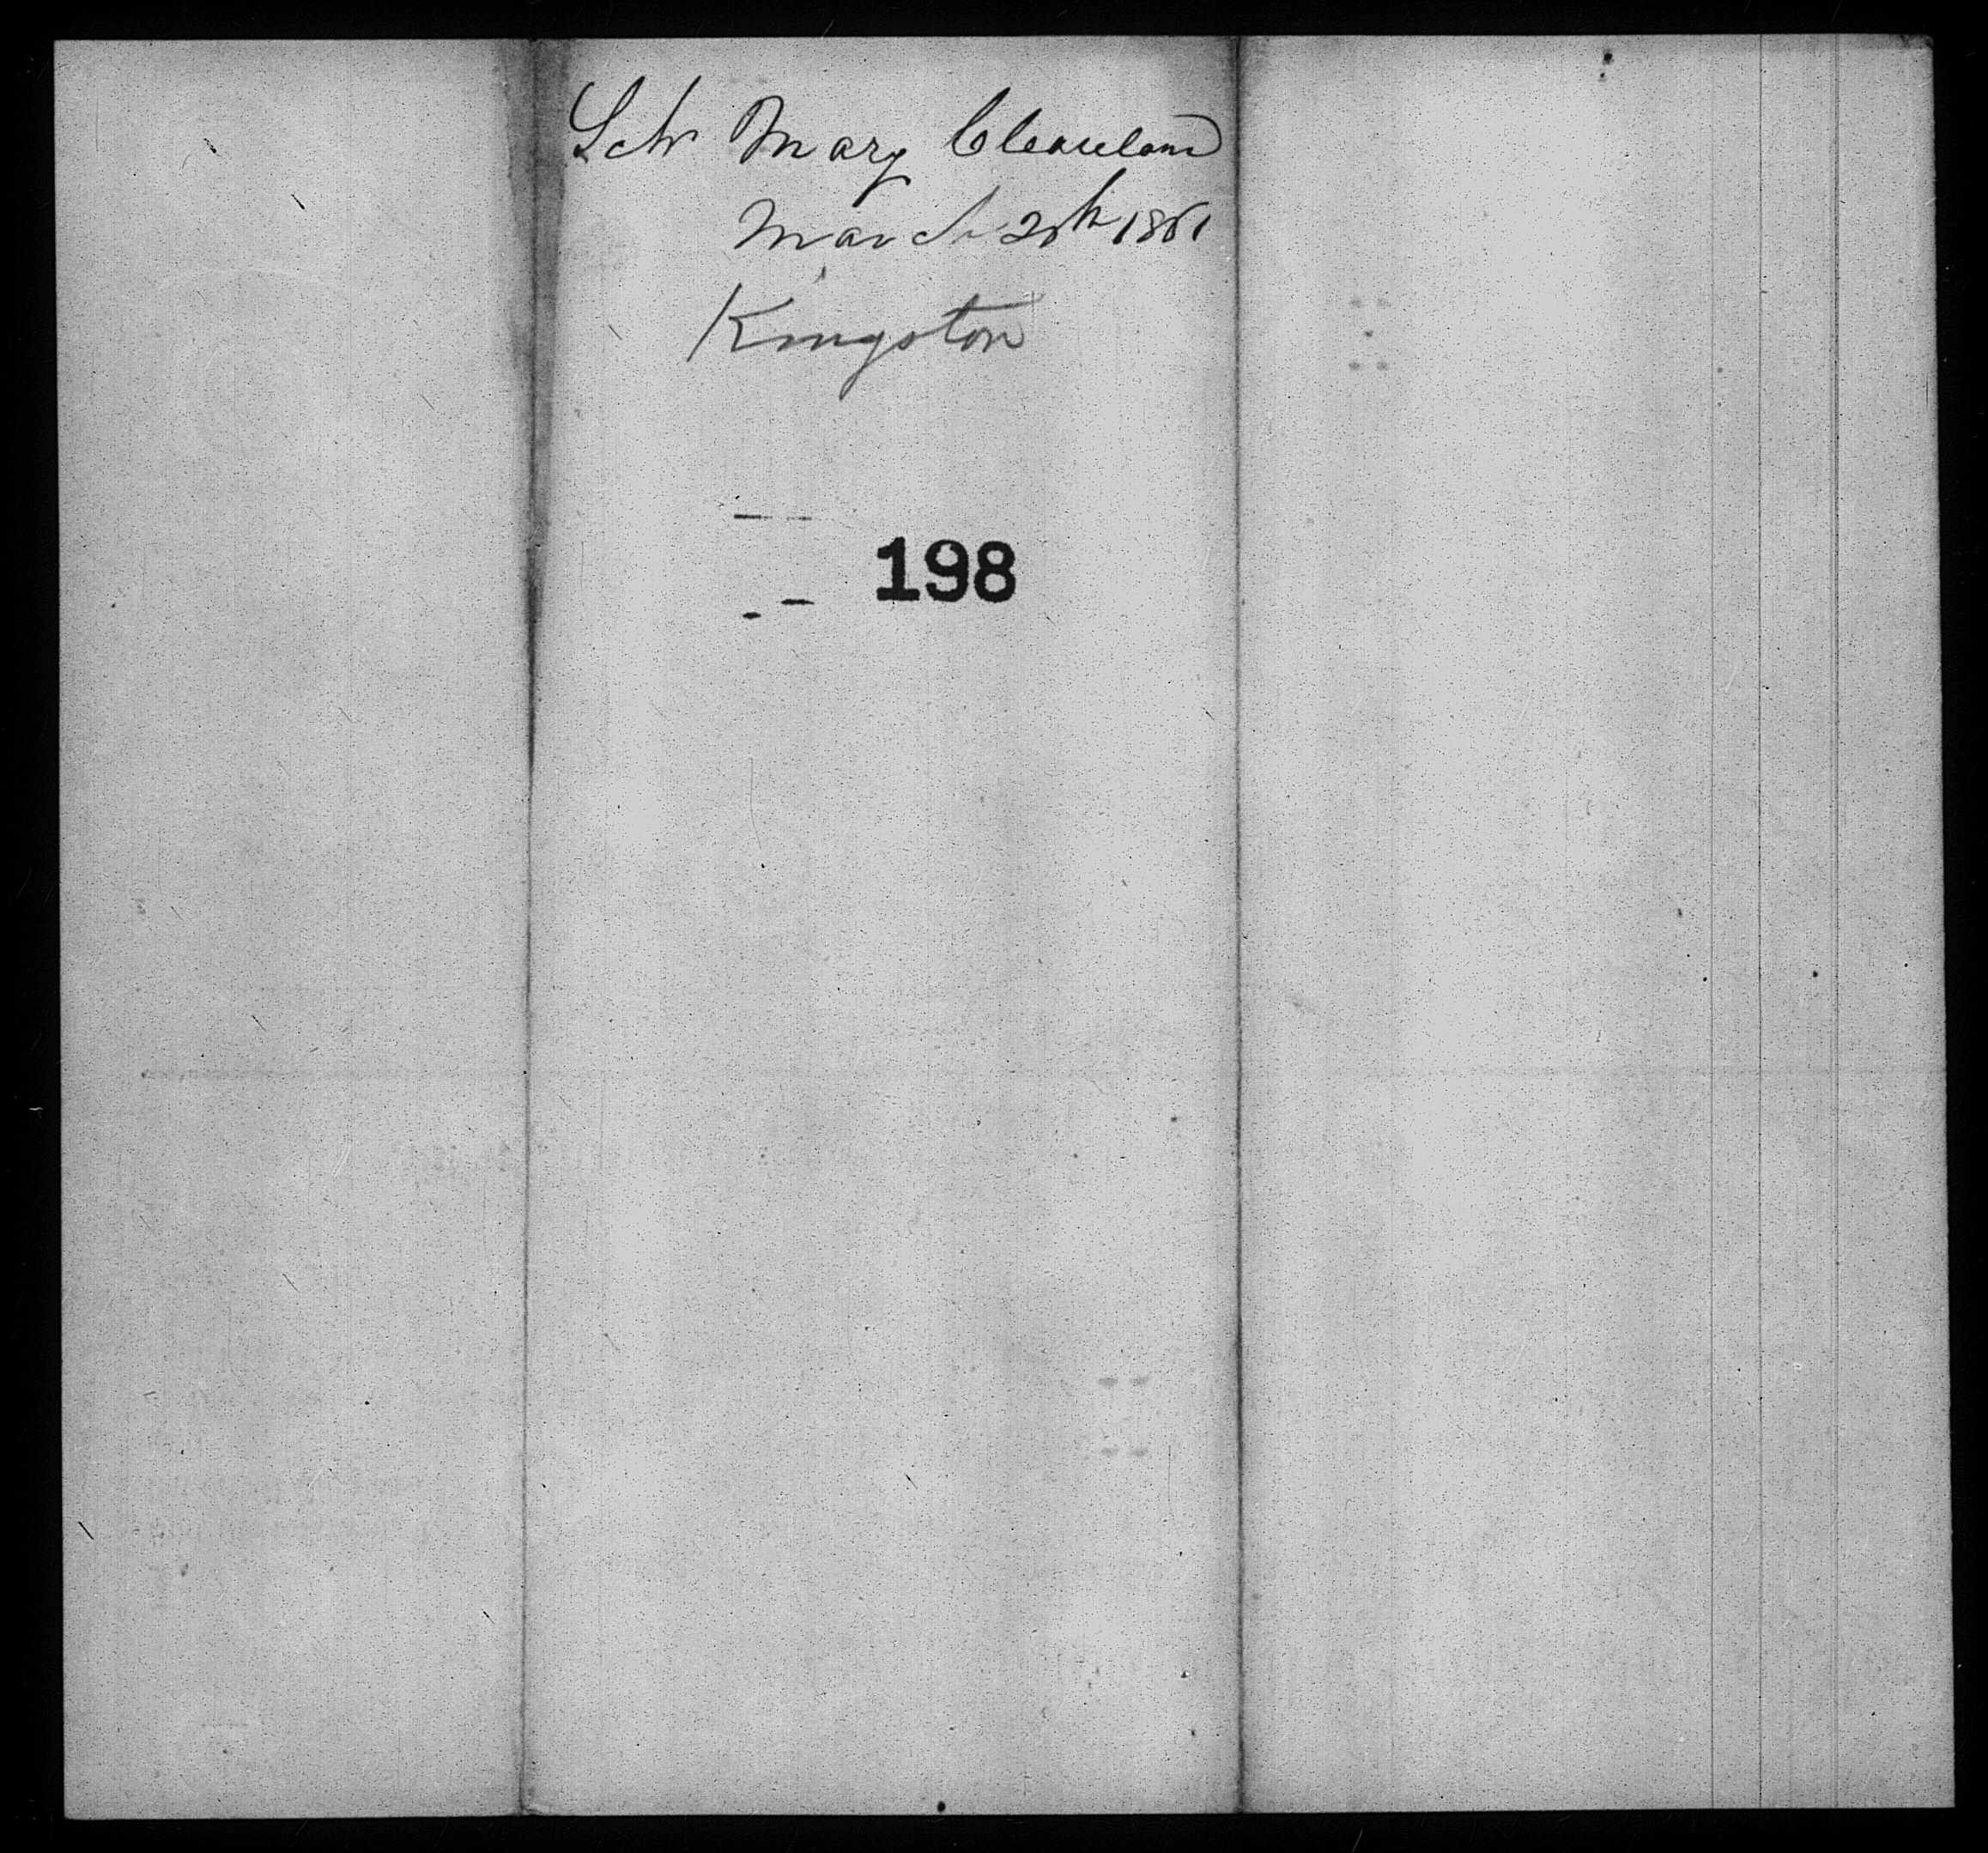 Schr Mary Cleaveland
March 26th 1861
Kingston
198